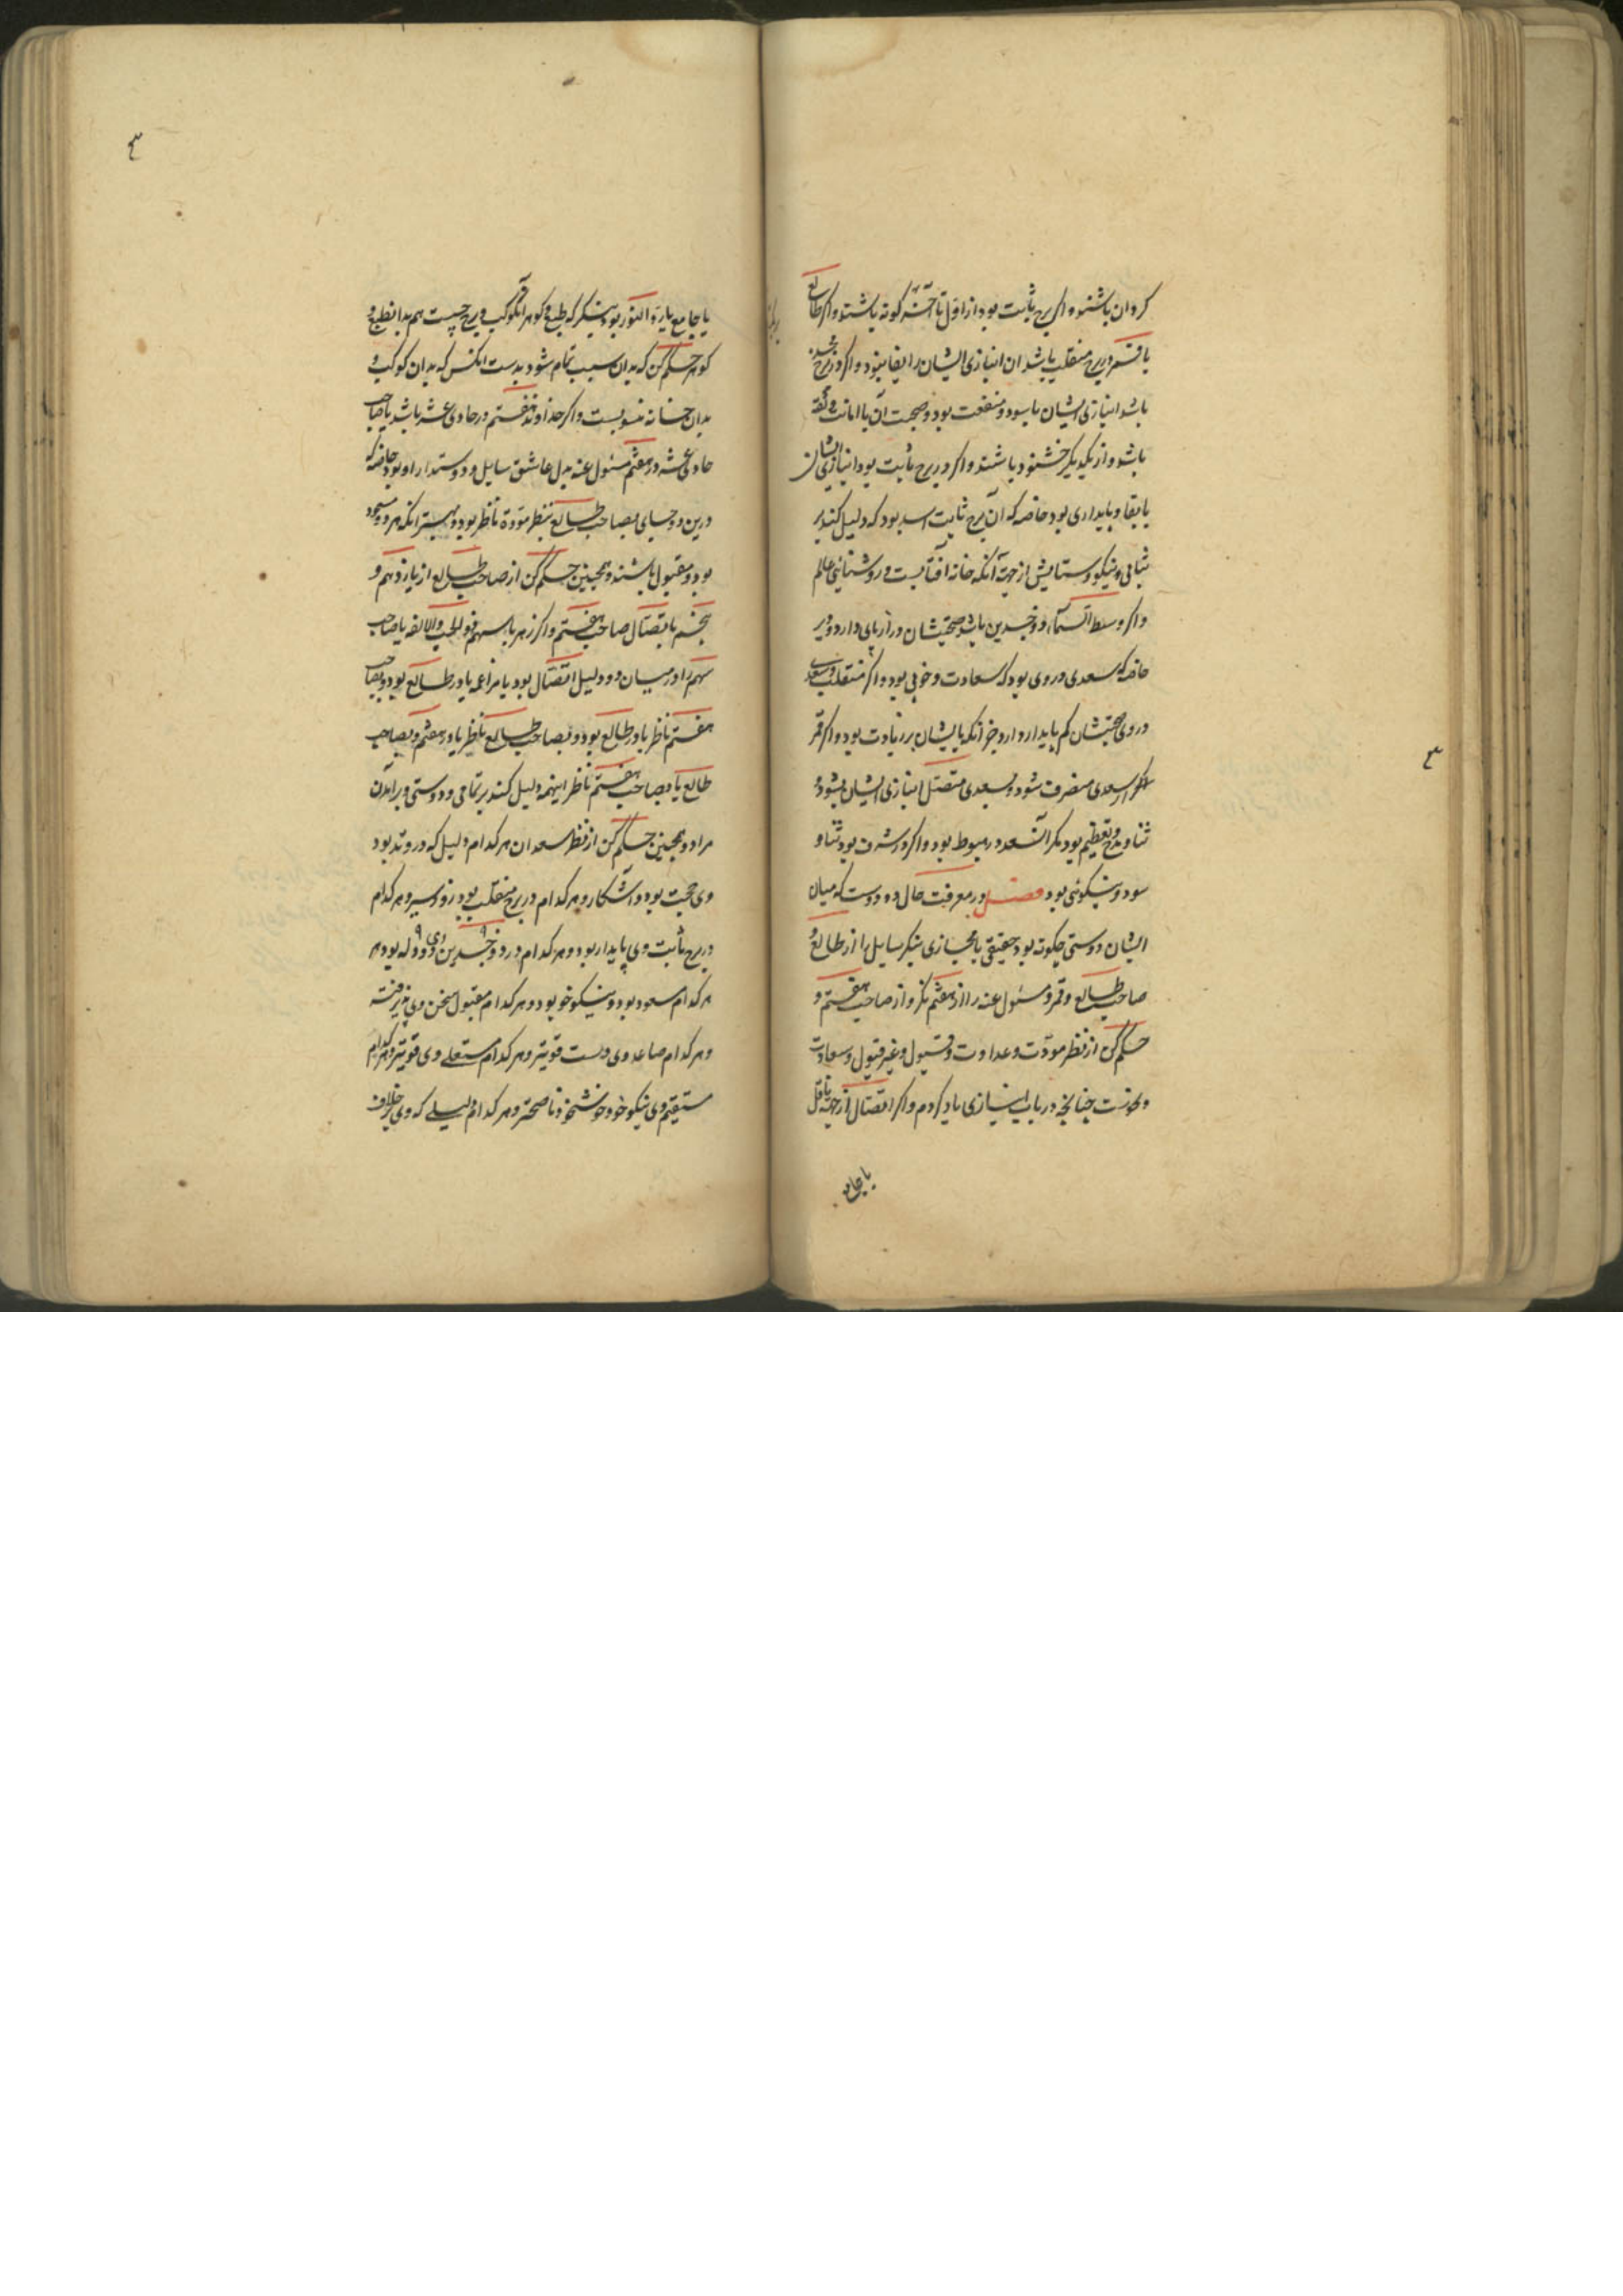 کردان باشند و اگر برج ثابت بود از اول تا آخر نه کونه باشند و اگر طالع
یا قمر در برج منقلب باشد آن انبازی ایشان را بقا نبود و اگر در برج ذو جسدین
باشد انبازی ایشان با سود و منفعت بود و صحبت آن با امانت و ثقة
باشد و از یکدیگر خشنود باشند و اگر در برج ثابت بود انبازی ایشان
با بقا و پایداری بود خاصه که آن برج ثابت اسد بود که دلیل کند بر
ثبات و نیکو و ستایش از جهة آنکه خانه آفتابست و روشنائی عالم
و اگر وسط السماء ذو جسدین باشد صحبتشان درازنای دارد و بر
خاصه که سعدی در وی بود که سعادت و خوبی بود و اگر منقلب و سعد
در وی صحبتشان کم پایدار دارد و جز آنکه بایشان بر زیادت بود و اگر قمر
از سعدی منصرف شود و بسعدی متصل انبازی ایشان بشود
ثنا و مدح و تعظیم بود مکر آن سعد در هبوط بود و اگر در شرف بود ثنا و
سود و نیکوئی بود فصل در معرفت حال دو دوست که میان
ایشان دوستی چکونه بود حقیقی یا مجازی بنکر سایل را از طالع و
صاحب طالع و قمر و مسئول عنه را از هفتم نکر و از صاحب هفتم و
حکم کن از نظر مودّت و عداوت و قبول و غیر قبول و سعادت
و نحوست چنانچه در باب انبازی یاد کردم و اگر اتصال از جهة ناقل
یا جامع
یا جامع یا رد النور بود بنیکر که طبع و کوهر آن کوکب و برج چیست هم بدان طبع و
کوهر حکم کن که بدان سبب تمام شود بدست آنکس که بدان کوکب و
بدان خانه منسوبست و اگر خداوند هفتم در حادی عشر باشد یا صاحب
حادی عشر در هفتم مسئول عنه بدل عاشق سایل و دوستدار او بود خاصه که
درین دو جای بصاحب طالع بنظر مودة ناظر بود و بهتر آنکه هر دو مسعود
بود و مقبول باشند و همچنین حکم کن از صاحب طالع از یازدهم و
پنجم با تصال صاحب هفتم و اگر زهره با سهم الحب والالفه یا صاحب
سهم او در میان دو دلیل اتصال بود یا مزاعمه یا در طالع بود و بصاحب
هفتم ناظر یا در طالع بود و بصاحب طالع ناظر یا در هفتم و بصاحب
طالع یا بصاحب هفتم ناظر اینهمه دلیل کند بر تمامی و دوستی و برآمدن
مراد و همچنین حکم کن از نظر سعدان هر کدام دلیل که در وتد بود
وی محبت بود و آشکار و هر کدام در برج منقلب بود زود سیر و هر کدام
در برج ثابت وی پایدار بود و هر کدام در ذو جسدین وی دو دله بود و هر
هر کدام مسعود بود وی نیکو خو بود و هر کدام مقبول سخن وی پذیرفته
و هر کدام صاعد وی دست قویتر و هر کدام مستعلی وی قویتر و هر کدام
مستقیم وی نیکو خو و خوشخو و ناصحتر و هر کدام دلیلی که وی بر خلاف